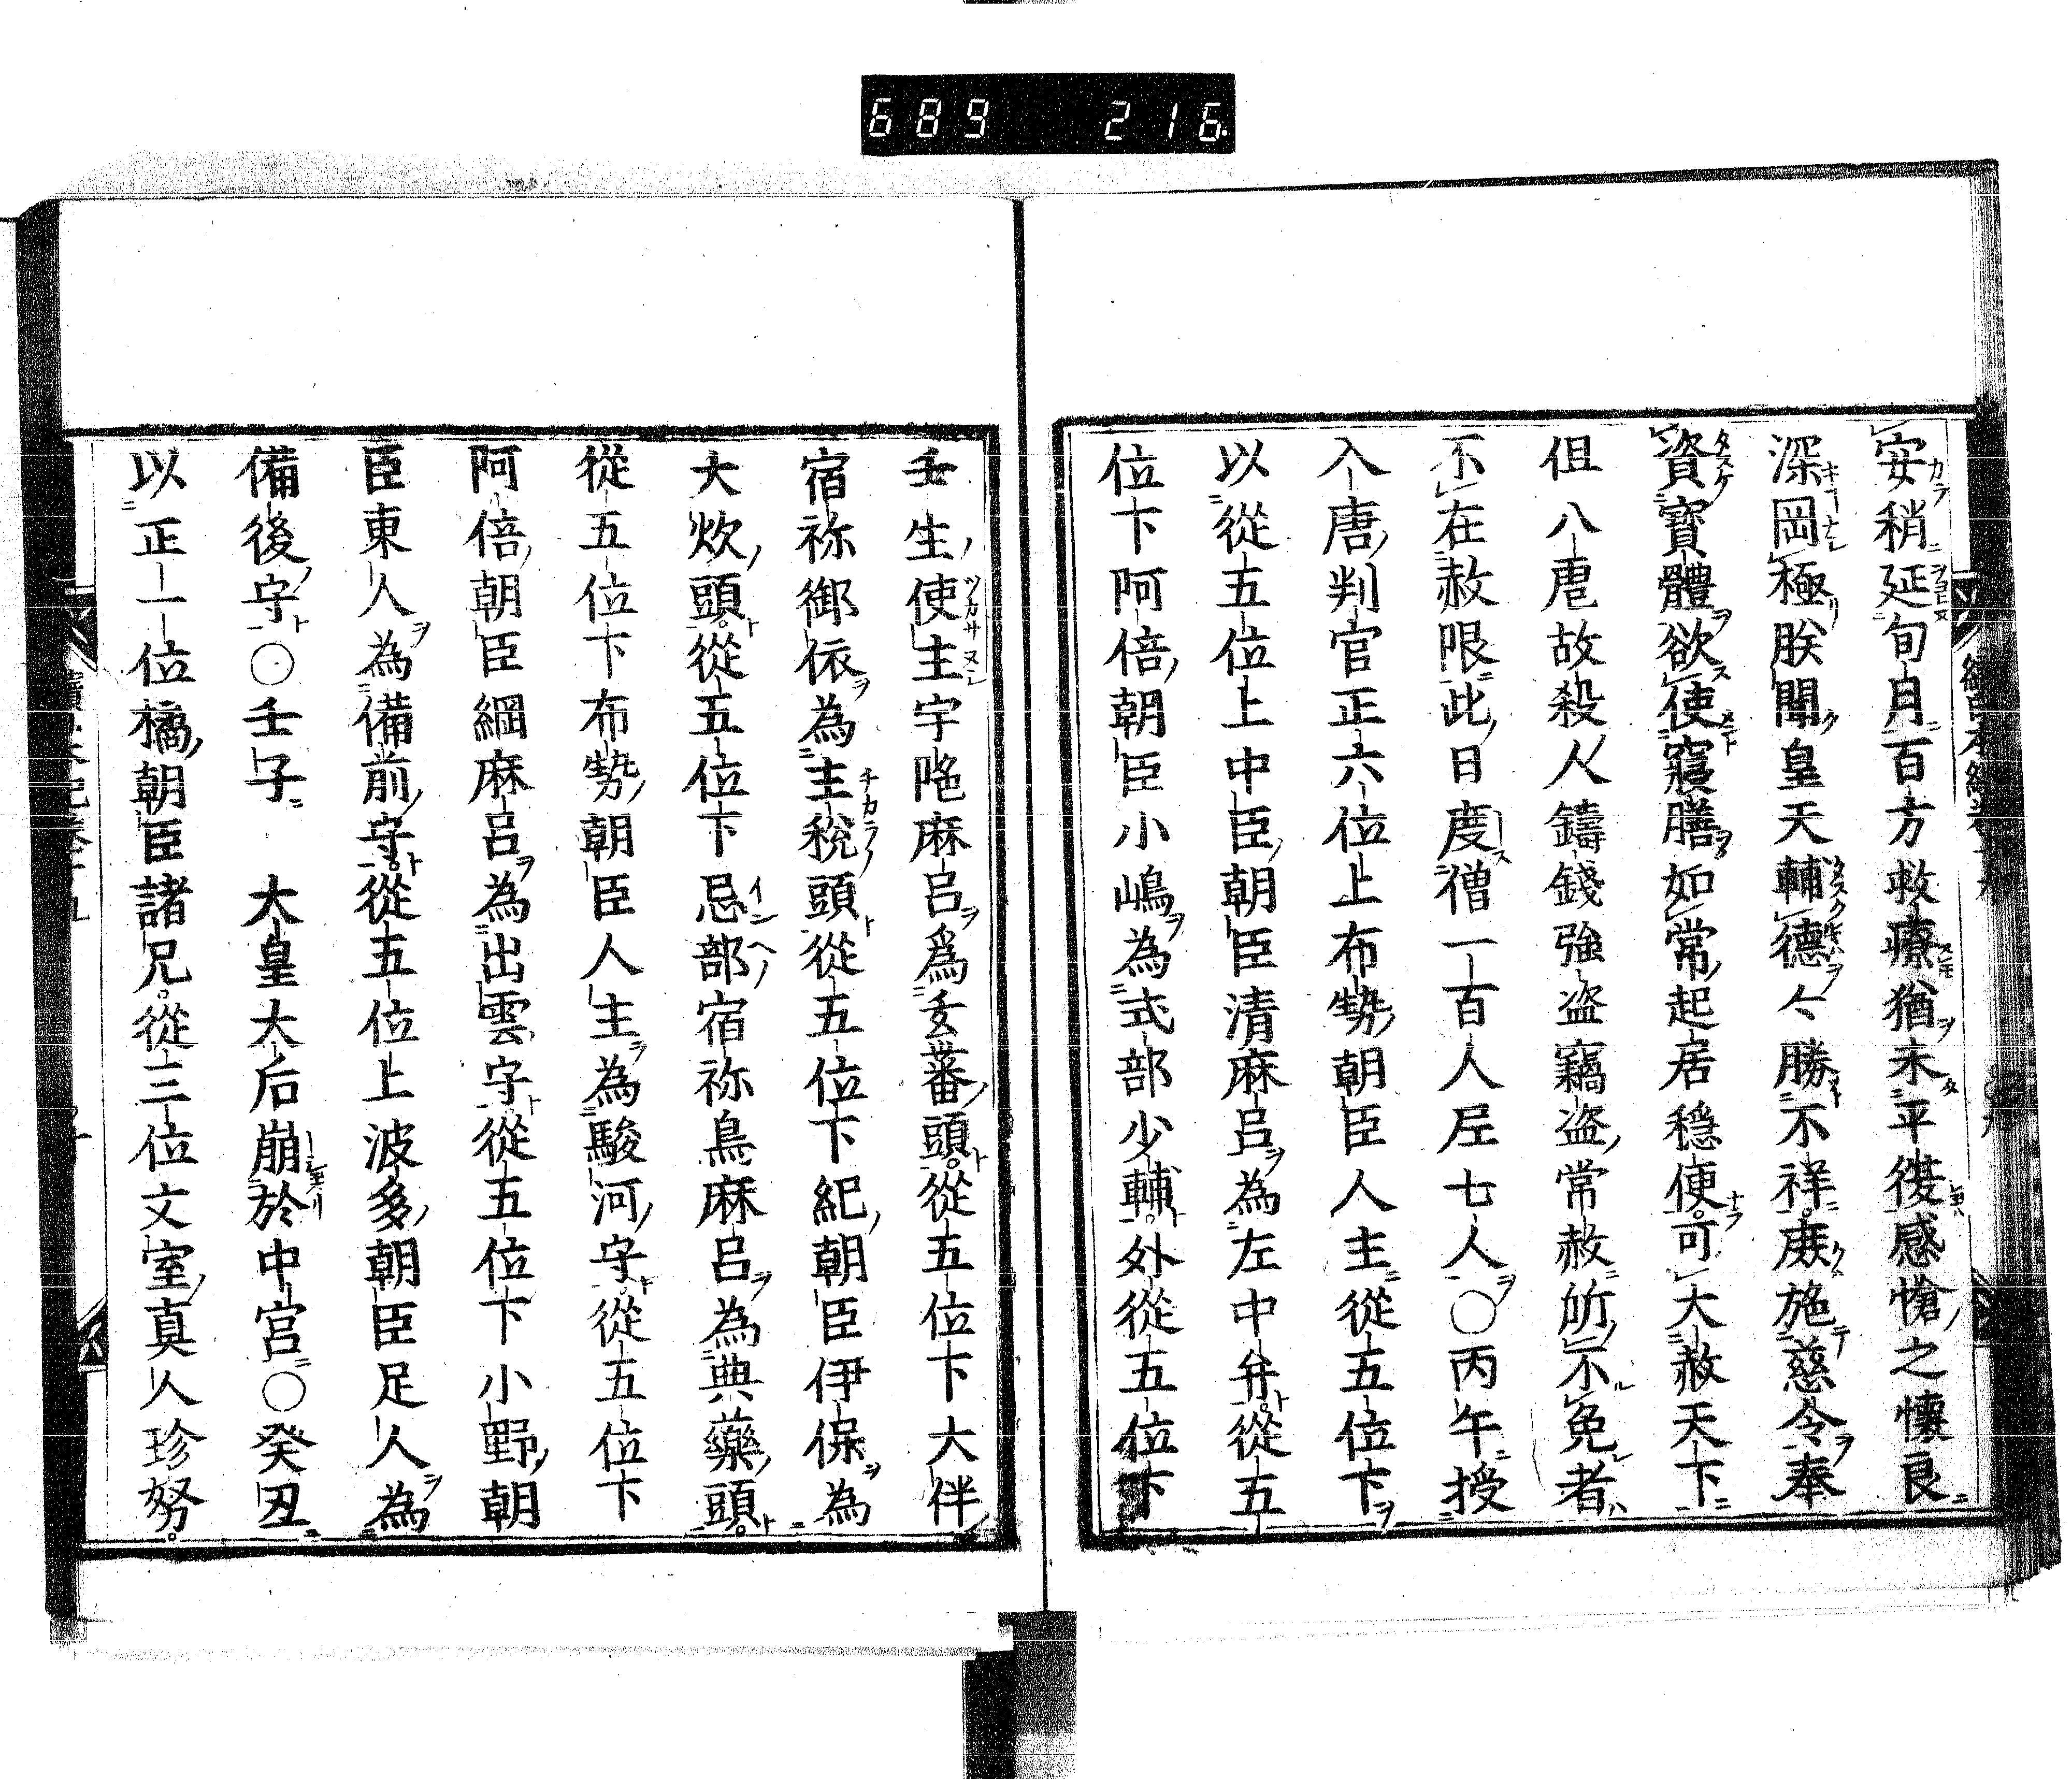 689 216
安稍延旬月百方救療猶未平復感愴之懷良
深岡極朕聞皇天輔德〻勝不祥庶施慈令奉
資寶體欲使寢膳如常起居穩便可大赦天下
但八虐故殺人鑄錢強盗竊盗常赦所不免者
不在赦限此日度僧一百人尼七人〇丙午授
入唐判官正六位上布勢朝臣人主從五位下
以從五位上中臣朝臣清麻呂為左中弁從五
位下阿倍朝臣小嶋為式部少輔外從五位下
壬生使主宇陁麻呂爲玄蕃頭從五位下大伴
宿祢御依為主稅頭從五位下紀朝臣伊保為
大炊頭從五位下忌部宿祢鳥麻呂為典藥頭
從五位下布勢朝臣人主為駿河守從五位下
阿倍朝臣綱麻呂為出雲守從五位下小野朝
臣東人為備前守從五位上波多朝臣足人為
備後守〇壬子 大皇太后崩於中宮〇癸丑
以正一位橘朝臣諸兄從三位文室真人珍努